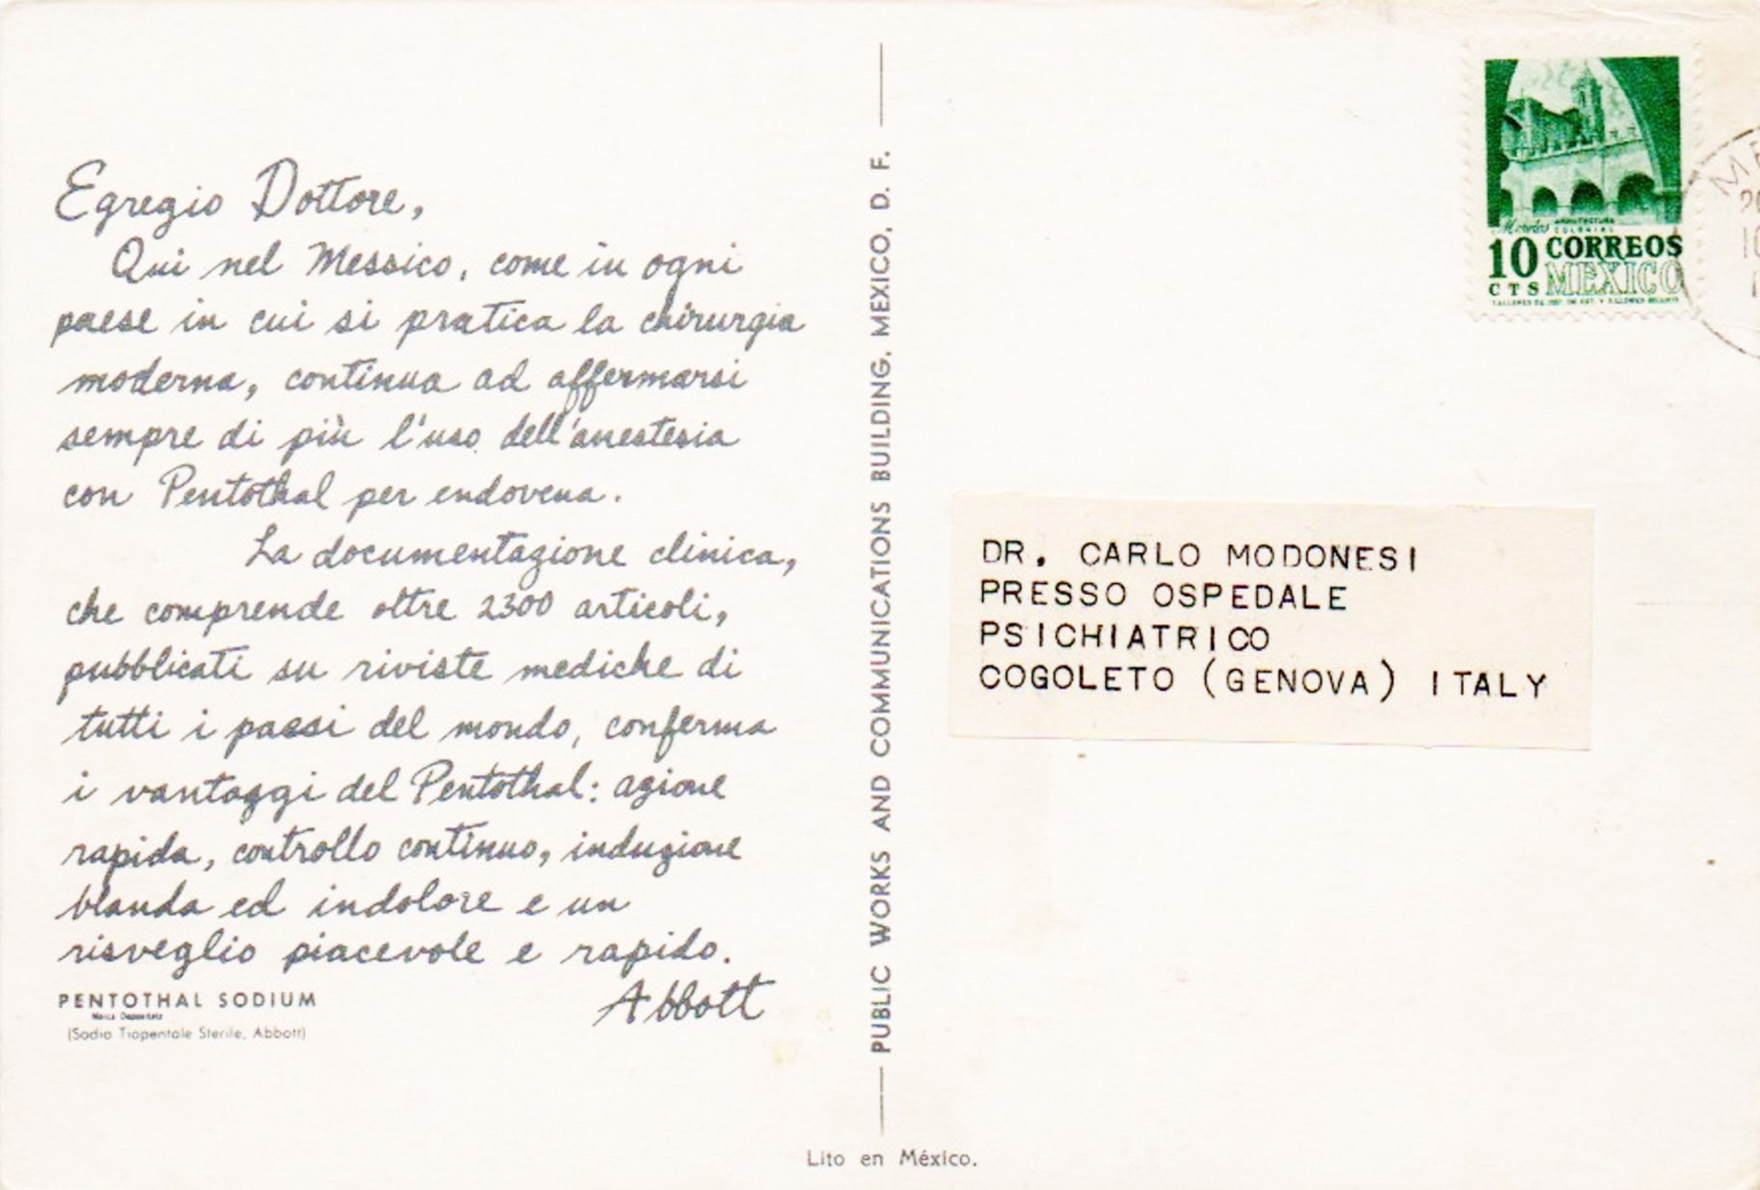 Egregio Dottore,
Qui nel Messico, come in ogni
paese in cui si pratica la chirurgia
moderna, continua ad affermarsi
sempre di più l'uso dell'anestesia
con Pentothal per endovena.
La documentazione clinica,
che comprende oltre 2300 articoli,
pubblicati su riviste mediche di
tutti i paesi del mondo, conferma
i vantaggi del Pentothal: azione
rapida, controllo continuo, induzione
blanda ed indolore e un
risveglio piacevole e rapido.
Abbott
PENTOTHAL SODIUM
Marca Depositata
(Sodio Tiopentale Sterile, Abbott)
PUBLIC WORKS AND COMMUNICATIONS BUILDING, MEXICO, D. F.
Lito en México.
Morelos ARQUITECTURA
COLONIAL
10 CORREOS
CTS MEXICO
DR. CARLO MODONESI
PRESSO OSPEDALE
PSICHIATRICO
COGOLETO (GENOVA) ITALY